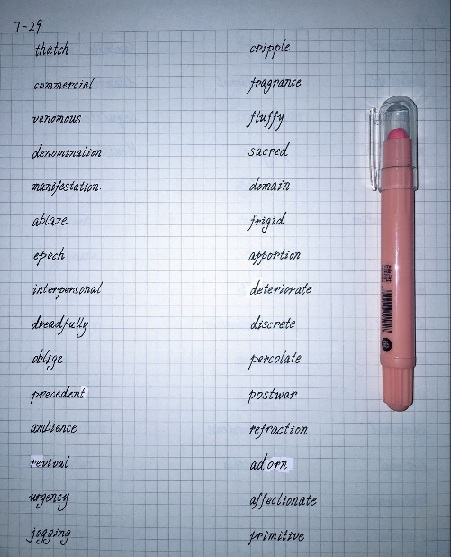 7-29
thatch
commercial
venomous
denomination
manifestation.
ablaze
epoch
interpersonal
dreadfully
oblige
precedent
ambience
revival
urgency
jogging
cripple
fragrance
fluffy
sacred
domain
frigid
apportion
deteriorate
discrete
percolate
postwar
refraction
adorn
affectionate
primitive